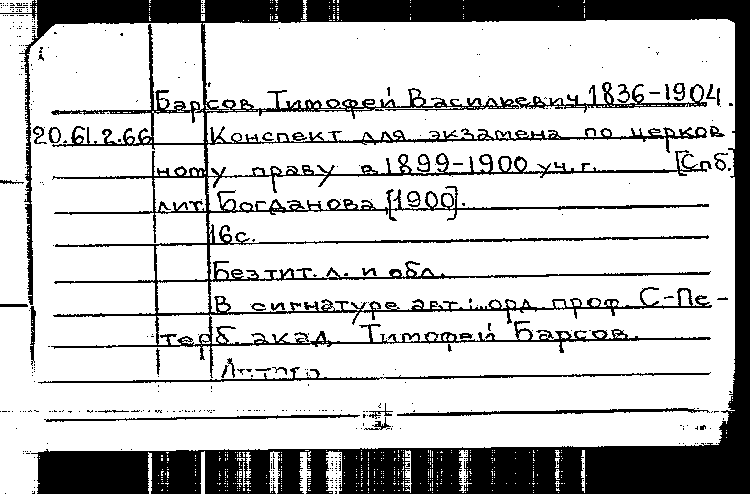 Барсов, Тимофей Васильевич, 1836-1904.
20.61.2.66 Конспект для экзамена по церков-
ному праву в 1899-1900 уч. г. [Спб.]
лит. Богданова, [1900].
16с.
Без тит. л. и обл.
В сигнатуре авт.: орд. проф. С-Пе-
терб. акад. Тимофей Барсов.
Литогр.